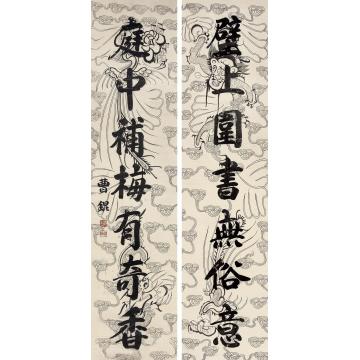 壁上圍書無俗意
庭中補梅有奇香
曹錕